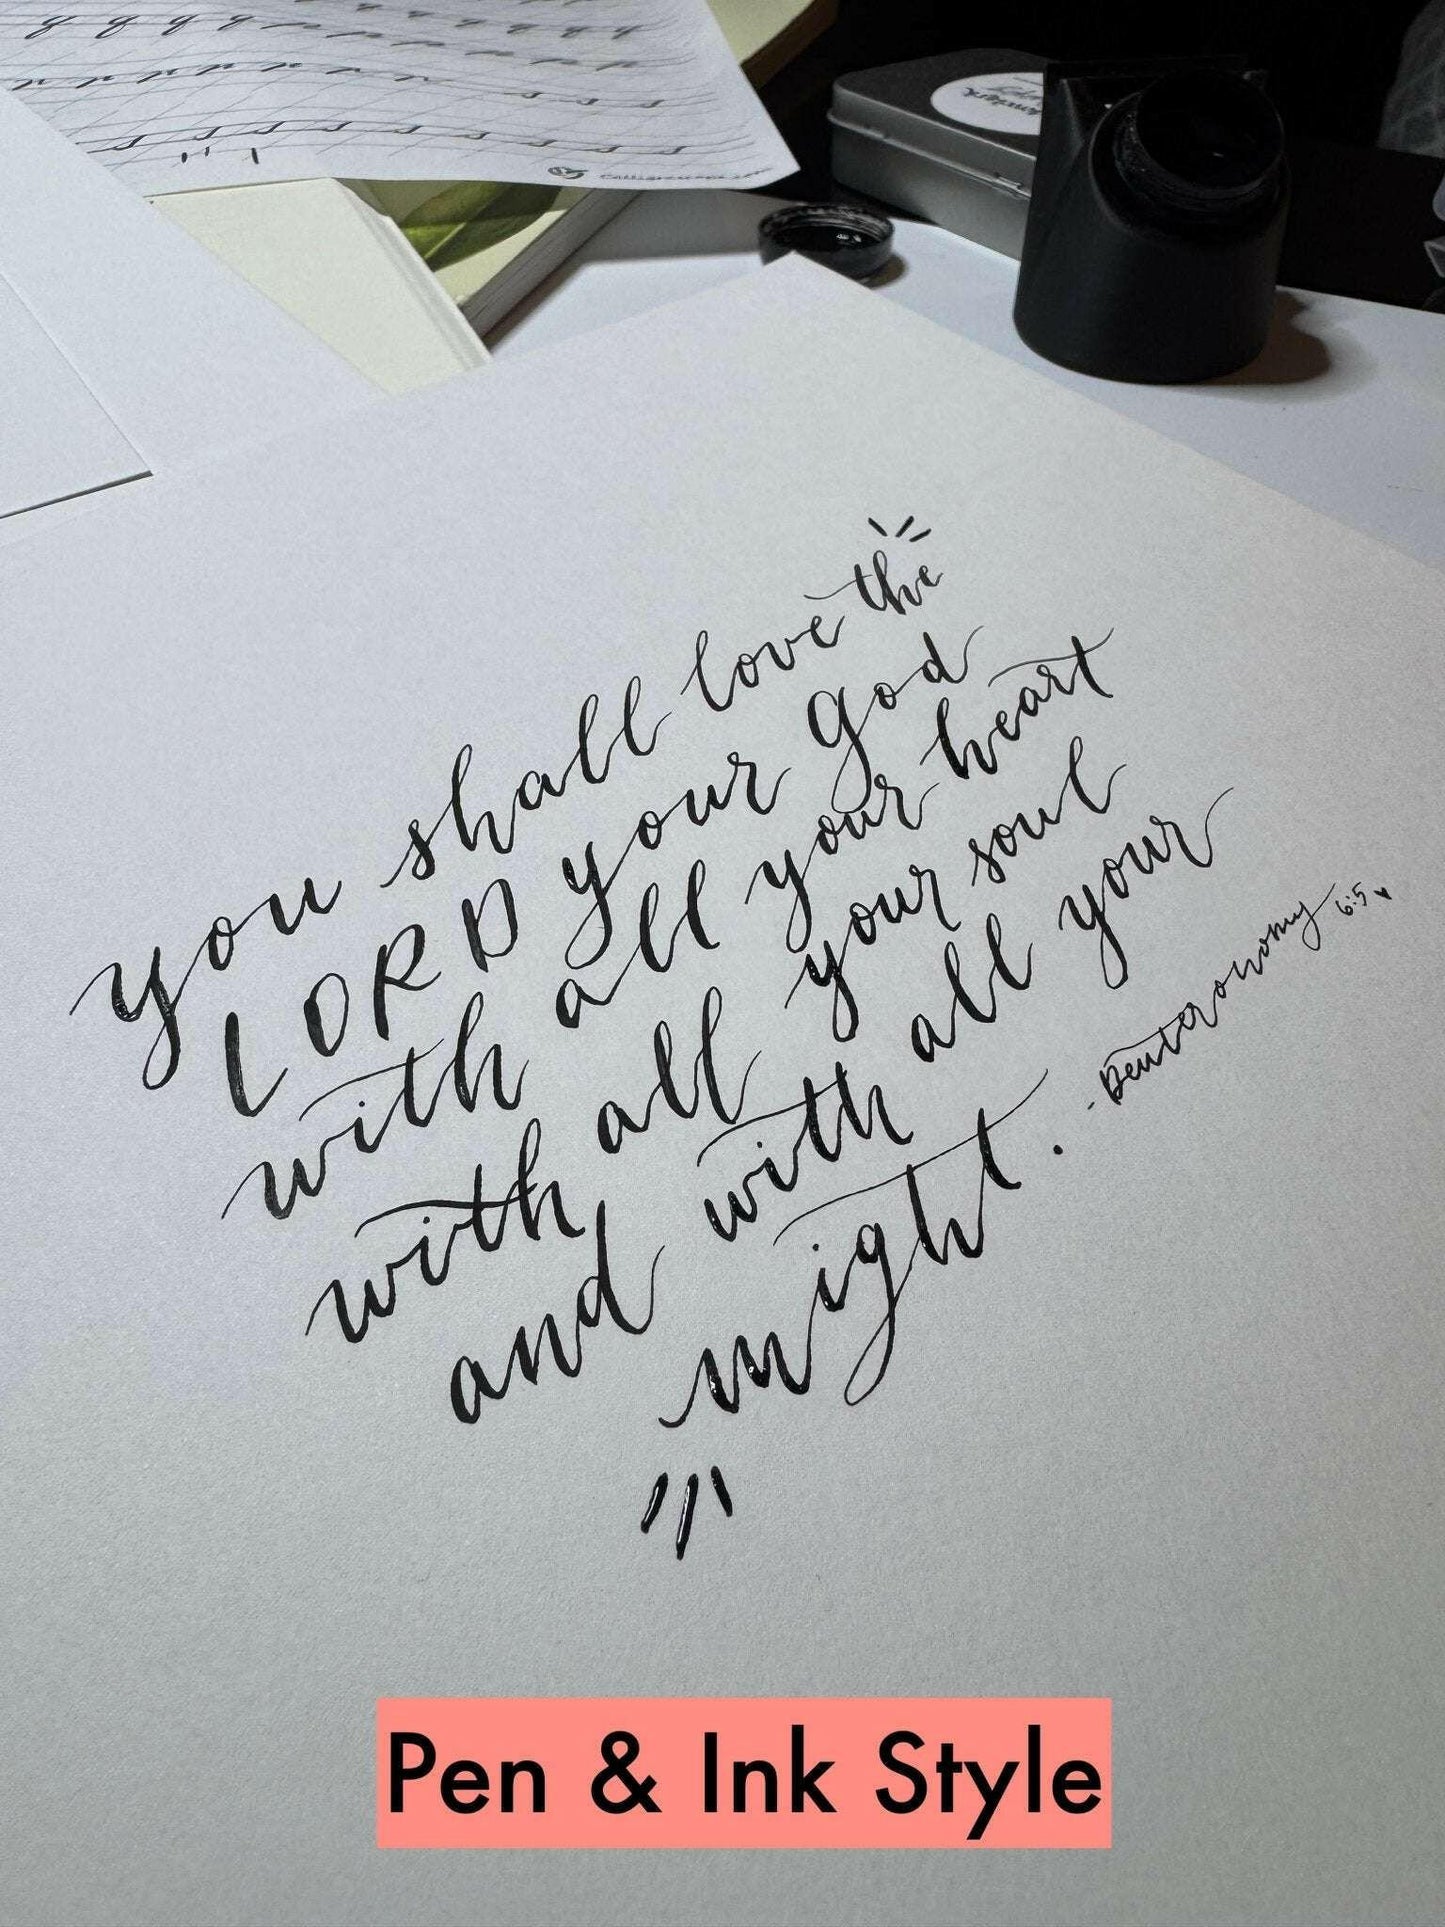 you shall love the
LORD your God
with all your heart
with all your soul
and with all your
might.
- Deuteronomy 6:5
Pen & Ink Style